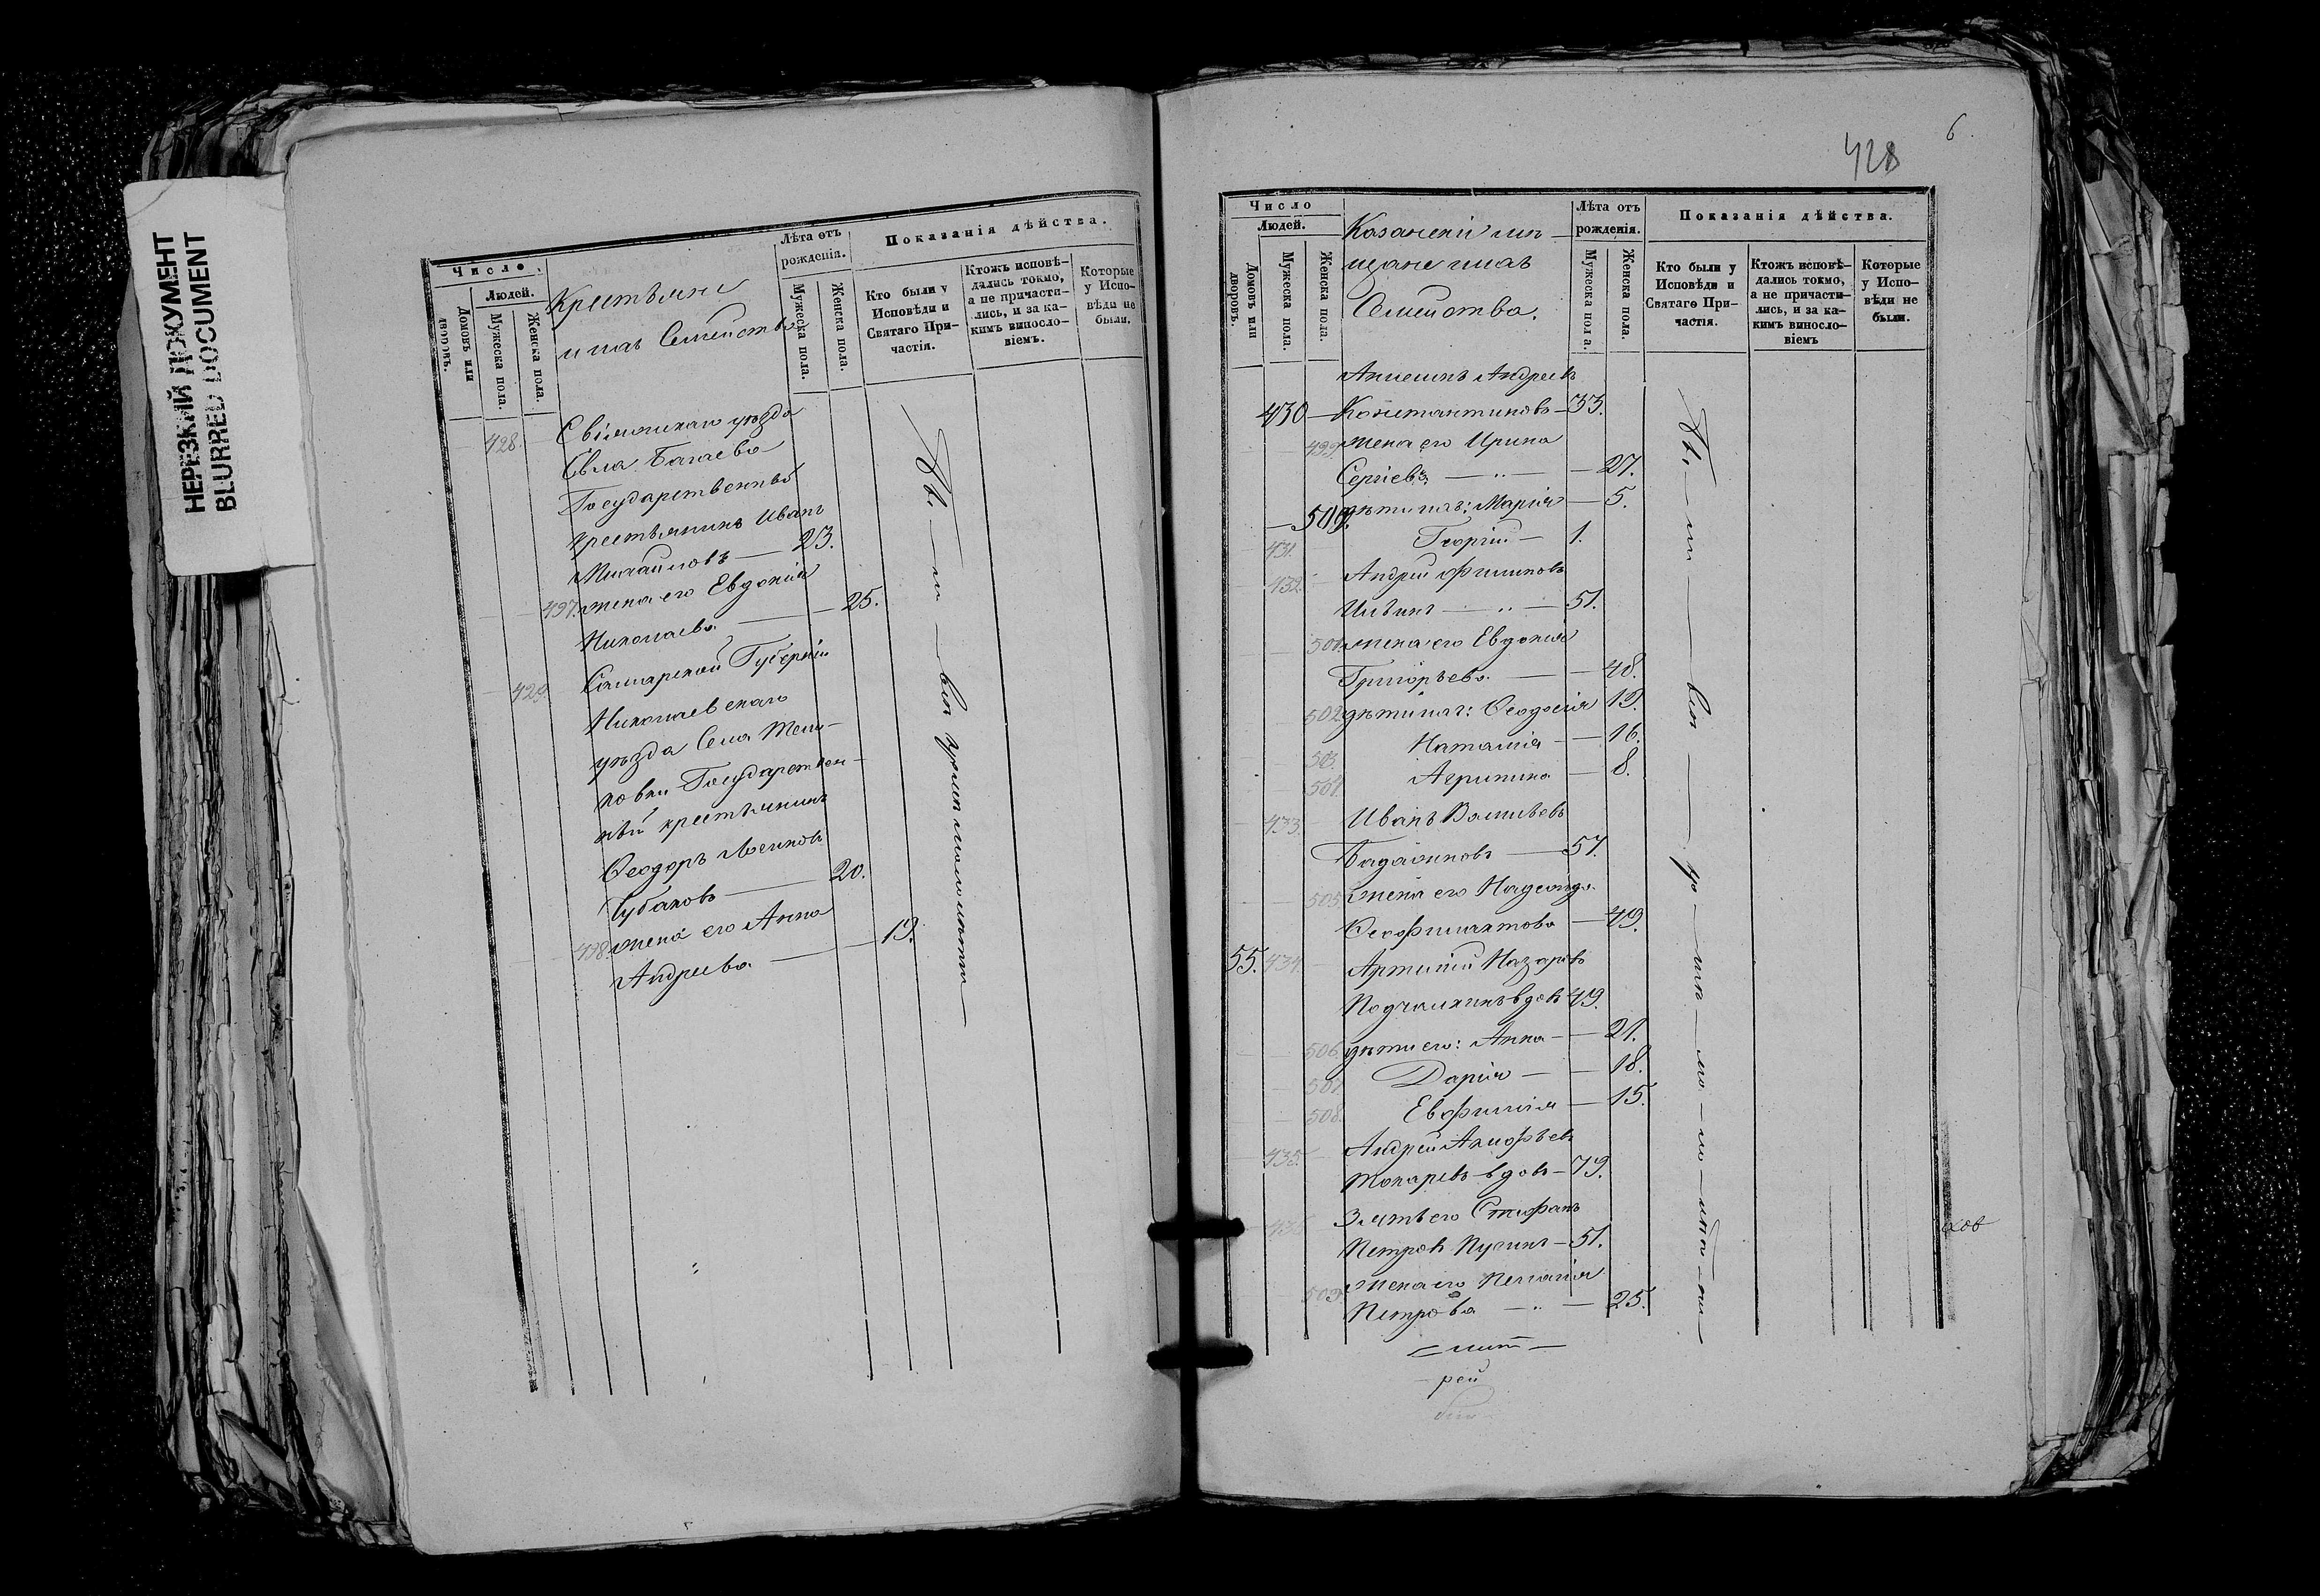 НЕРЕЗКИЙ ДОКУМЕНТ
BLURRED DOCUMENT
Число
Людей.
Домовъ или дворовъ.
Мужеска пола.
Женска пола.
Крестьяне
и ихъ Семейства
Лѣта отъ рожденія.
Мужеска пола.
Женска пола.
Показанія дѣйства.
Кто были у Исповѣди и Святаго Причастія.
Ктожъ исповѣ-
дались токмо,
а не причасти-
лись, и за ка-
кимъ винносло-
віемъ.
Которые
у Испо-
вѣди не
были.
428. Свіяжскаго уѣзда
Села
Государственный
крестьянинъ Иванъ
Михайловъ — 23.
497. жена его Евдокія
Николаева — 25.
429. Самарской Губерніи
Николаевскаго
уѣзда Села
Государствен-
ный крестьянинъ
Ѳеодоръ
Чубаковъ — 20.
498. жена его Анна
Андреева — 19.
428
6.
Число
Людей.
Домовъ или дворовъ.
Мужеска пола.
Женска пола.
Казанскіи мѣ-
щане и ихъ
Семейства.
Лѣта отъ
рожденія.
Мужеска пола.
Женска пола.
Показанія дѣйства.
Кто были у
Исповѣди и
Святаго При-
частія.
Ктожъ исповѣ-
дались токмо,
а не причасти-
лись, и за ка-
кимъ винносло-
віемъ
Которые
у Испо-
вѣди не
были.
Андреевъ
430 — Константиновъ — 33.
499. жена его Ирина
Сергіева — „ — 27.
500. дѣти ихъ: Марія — 5.
431. Георгій — 1.
432. Андрей Филиповъ
— „ — 51.
501. жена его Евдокія
Григорьева — 48.
502. дѣти ихъ: Ѳеодосія 19.
503. Наталія — 16.
504. Агрипина — 8.
433. Иванъ Васильевъ
— 57.
505. жена его Надежда
Ѳеофилактова — 49.
55. 434. Артемій Назаровъ
вдовъ 49.
506. дѣти его: Анна — 21.
507. Дарія — 18.
508. Евфимія — 15.
435. Андрей
Токаревъ вдовъ — 79.
436. Зять его Стефанъ
Петровъ — 51.
509. жена его Пелагія
Петрова — „ — 25.